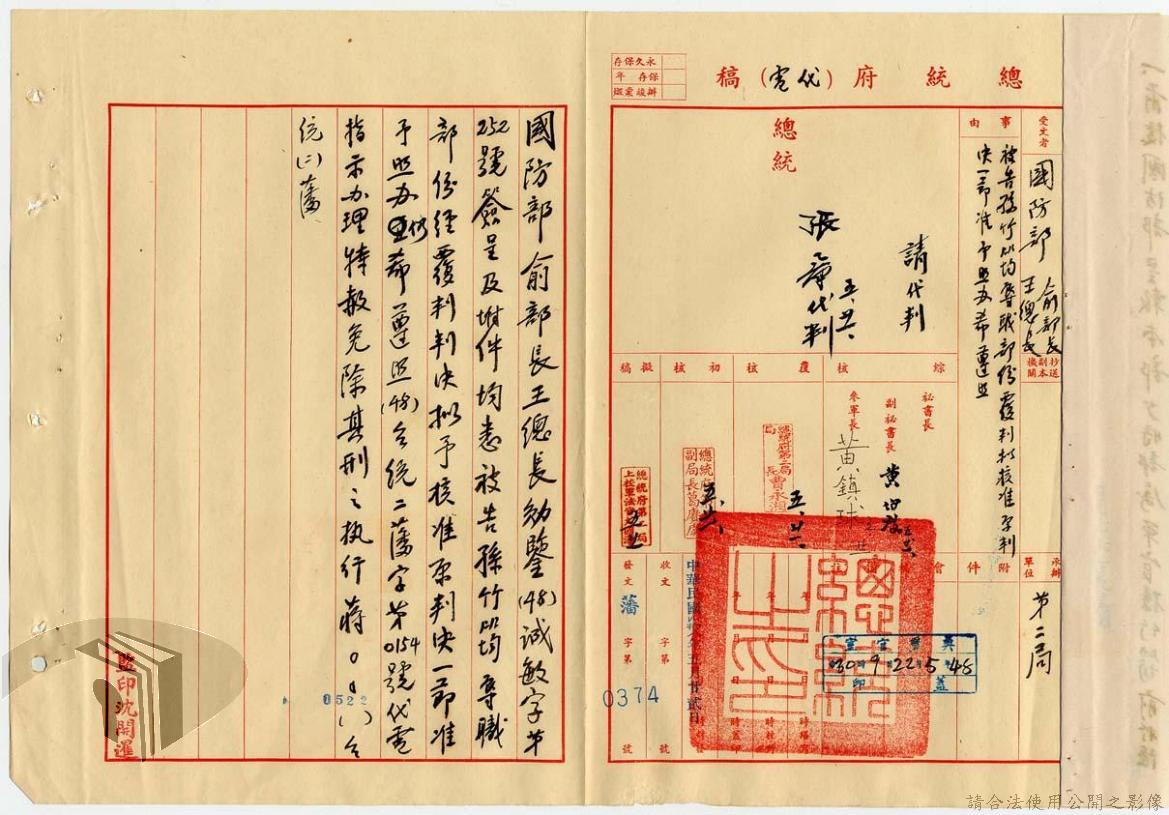 總統府(代電)稿
永久保存
保存 年
受文者
國防部 俞部長
王總長
抄送副本機關
事由
被告孫竹筠辱職部份覆判擬核准原判
決一節准予照办希遵照
承辦單位
第二局
附件
總統
請代判
張羣代判
五、廿一
綜核
覆核
初核
擬稿
秘書長
副祕書長
參軍長 黃鎮球
總統府第二局局長曹承
五、廿一
副局長葛
中華民國
五月廿貳日
收文 字第 號
發文 藩 字第 0374 號
48 5 22 9 30
國防部俞部長王總長勛鑒(48)誠敏字第
252號簽呈及附件均悉被告孫竹筠辱職
部份經覆判判決擬予核准原判決一節准
予照办仍希遵照(48)台統二藩字第0154號代電
指示办理特赦免除其刑之執行蔣○○(一)台
統(二)藩
0522
監印沈開運
請合法使用公開之影像